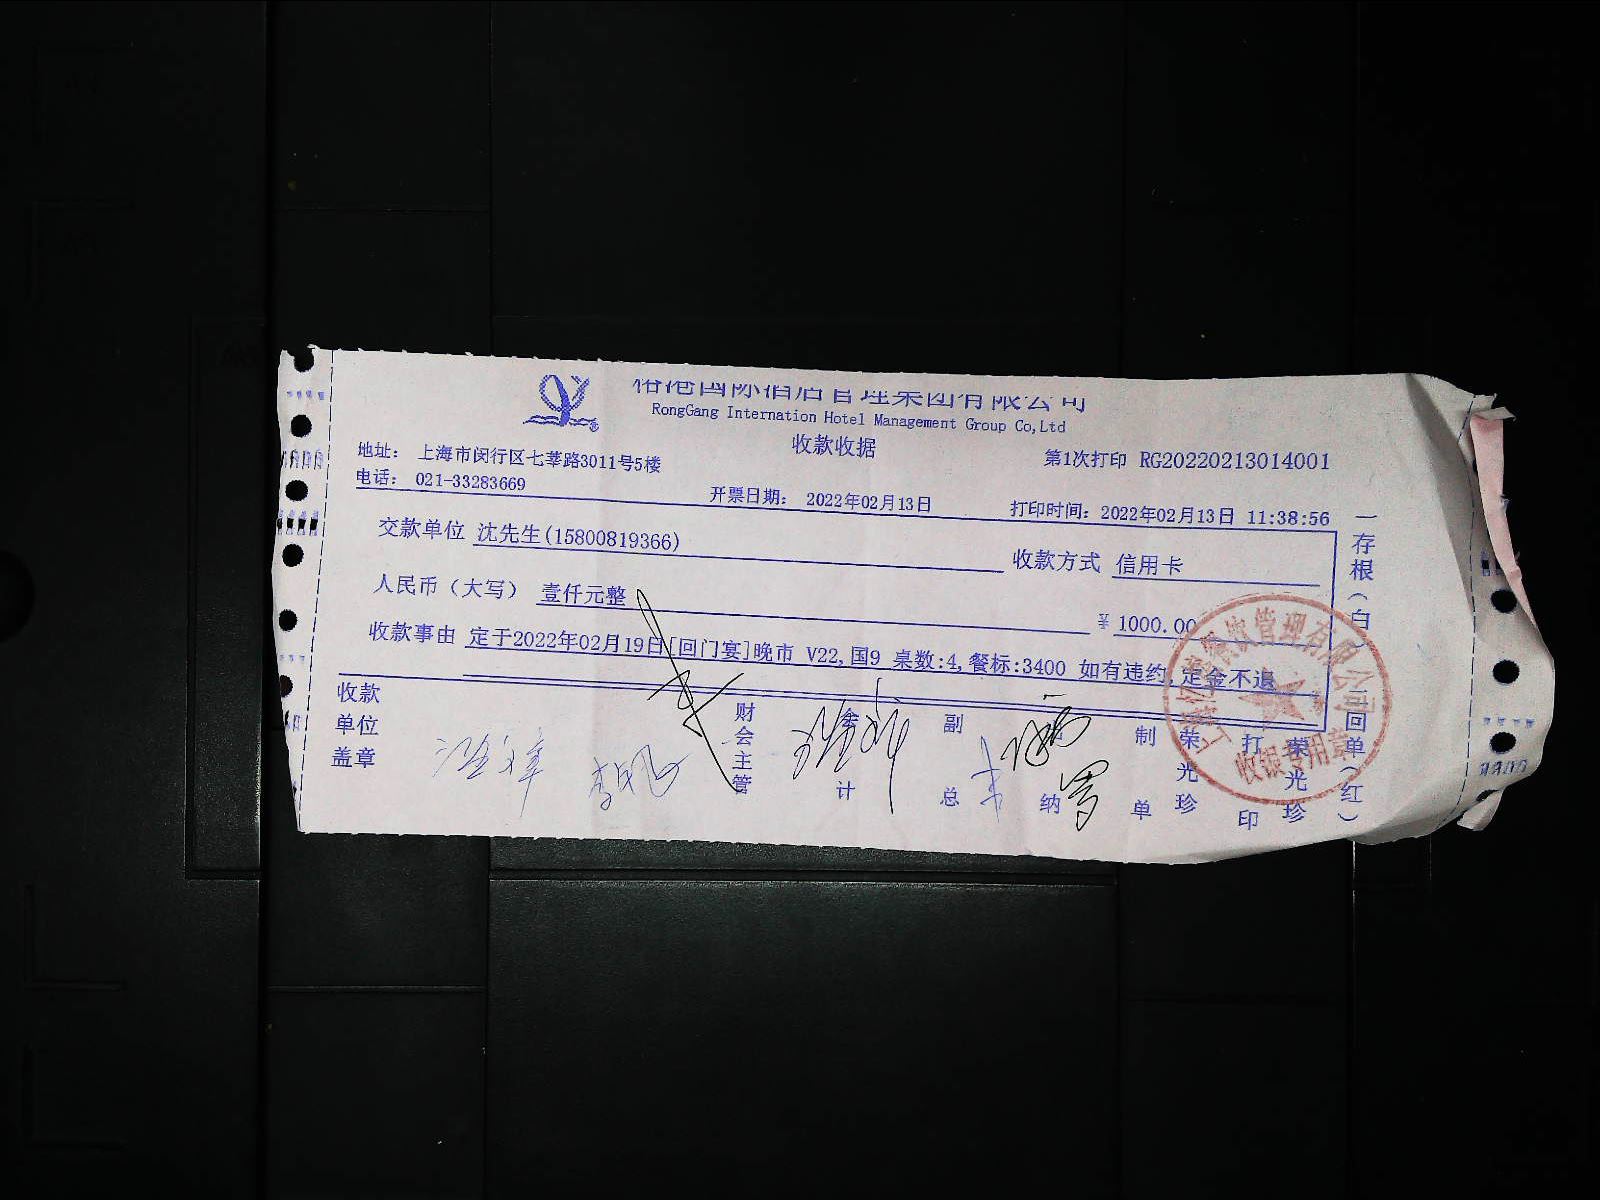 裕港国际酒店管理集团有限公司
RongGang Internation Hotel Management Group Co,Ltd
收款收据
地址: 上海市闵行区七莘路3011号5楼
第1次打印 RG20220213014001
电话: 021-33283669
开票日期: 2022年02月13日
打印时间: 2022年02月13日 11:38:56
交款单位 沈先生(15800819366)
收款方式 信用卡
人民币（大写） 壹仟元整
￥1000.00
收款事由 定于2022年02月19日[回门宴]晚市 V22,国9 桌数:4,餐标:3400 如有违约,定金不退
收款单位盖章
财会主管
会计
副总
纳
制单
荣光珍
打印
荣光珍
一存根(白)二回单(红)
餐饮管理有限公司
收银专用章